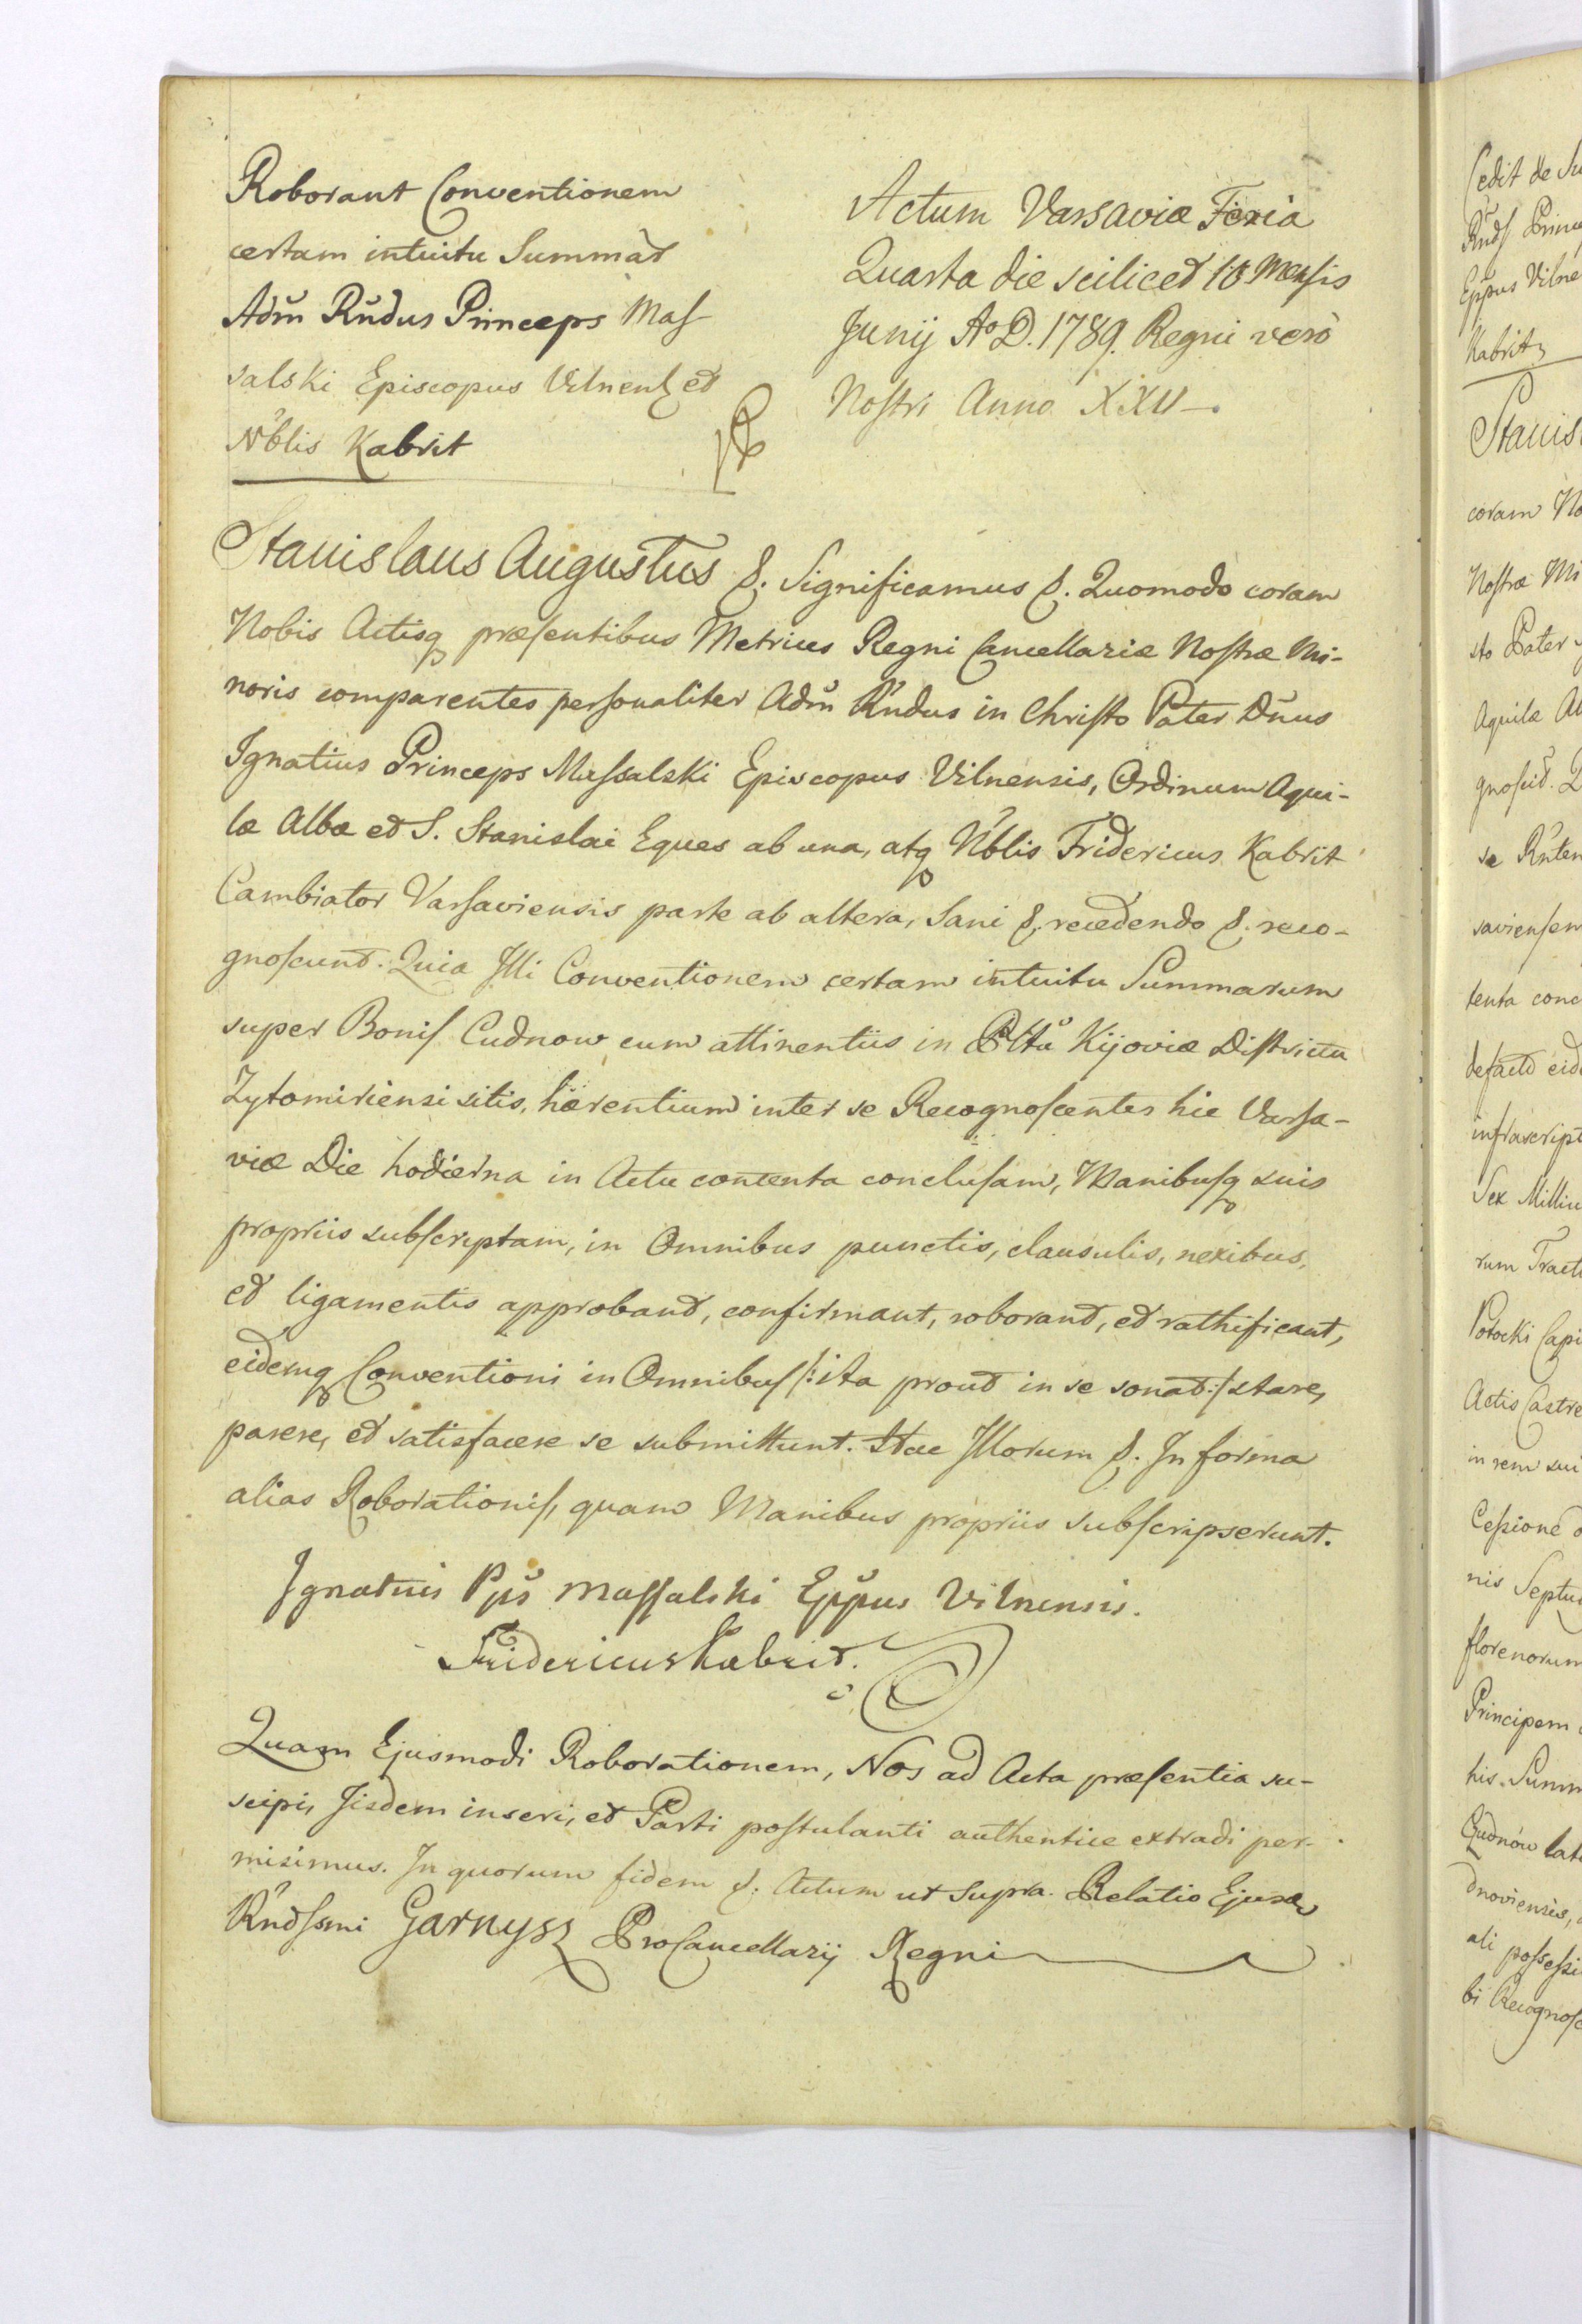 Roborant Conventionem
certam intuitu Summar
Adm̃ Rñdus Princeps Maſ
salski Episcopus Vilnens et
Nb̃lis Kabrit
Actum Varsaviæ Feria
Quarta die scilicet 10 Mensis
Junij Ao D. 1789. Regni verò
Noſtri Anno XXV.
Stanislaus Augustus &. Significamus &. Quomodo coram
Nobis Actisq præſentibus Metrices Regni Cancellariæ Noſtræ Mi-
noris comparentes perſonaliter Adm̃ Rñdus in Chriſto Pater Dñus
Ignatius Princeps Maſsalski Episcopus Vilnensis, Ordinum Aqui-
læ Albæ et S. Stanislai Eques ab una, atq Nb̃lis Fridericus Kabrit
Cambiator Varſaviensis parte ab altera, Sani &, recedendo &. reco-
gnoſcunt. Quia Illi Conventionem certam intuitu Summarum
super Boniſ Cudnow cum attinentiis in Pltũ Kijoviæ Diſtrictu
Zytomiriensi sitis, hærentium inter se Recognoſcentes hic Varſa-
viæ Die hodierna in Actu contenta concluſam, Manibuſq suis
propriis subſcriptam, in Omnibus punctis, clausulis, nexibus,
et ligamentis approbant, confirmant, roborant, et rathificant,
eidemq Conventioni in Omnibuſ /:ita prout in se sonat:/ stare,
parere, et satisfacere se submittunt. Hac Illorum &. In forma
alias Roborationiſ, quam Manibus propriis subſcripserunt.
Ignatius Pp̃s Maſſalski Epp̃us Vilnensis.
Fridericus Kabrit.
Quam Ejusmodi Roborationem, Nos ad Acta præſentia su-
scipi, Jisdem inseri, et Parti poſtulanti authentice extradi per-
misimus. In quorum fidem &. Actum ut Supra. Relatio Ejusd
Rñdſsmi Garnysz ProCancellarij Regni
Cedit de Su
Rñdſ Prince
Epp̃us Vilne
Kabrit
Stanis
coram No
Noſtræ Mi
sto Pater
Aquilæ Al
gnoſcit. Q
se Rñten
savienſem
tenta conc
defacto eid
infrascript
Sex Milliu
rum Tract
Potocki Capi
Actis Castre
in rem sui
Ceſsione
nis Septu
florenorum
Principem
his Summ
Cudnow lat
dnoviensis,
ali poſseſsi
bi Recognoſc